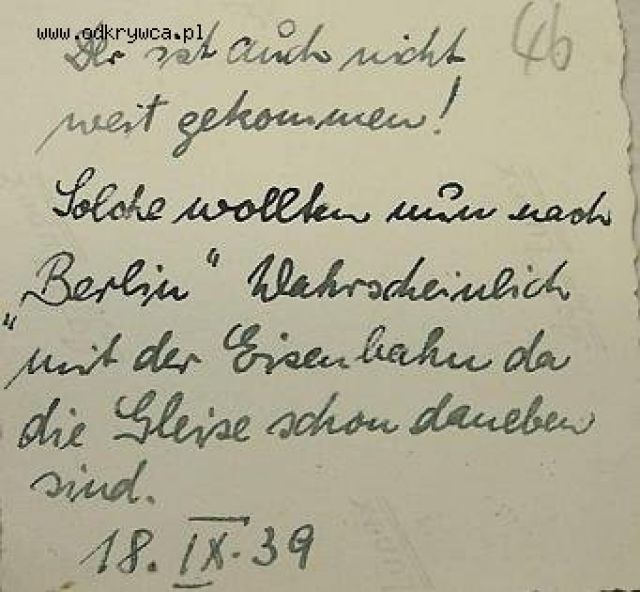 www.odkrywca.pl
46
Der ist auch nicht
weit gekommen!
Solche wollten nun nach
"Berlin" Wahrscheinlich
mit der Eisenbahn da
die Gleise schon daneben
sind.
18. IX. 39